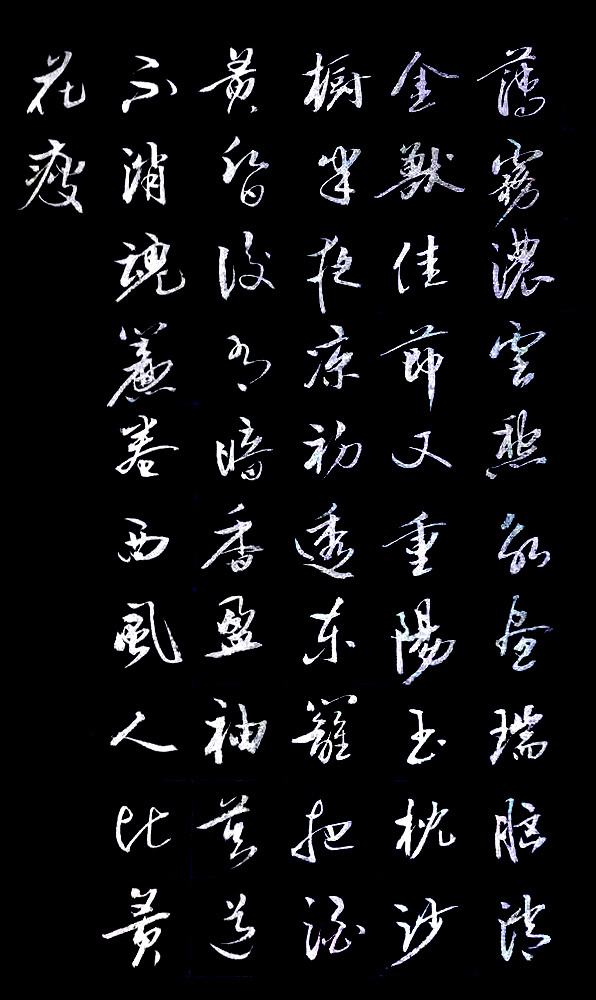 薄霧濃雲愁永晝瑞腦消
金獸佳節又重陽玉枕沙
櫥半夜涼初透東籬把酒
黃昏後有暗香盈袖莫道
不消魂簾卷西風人比黃
花瘦